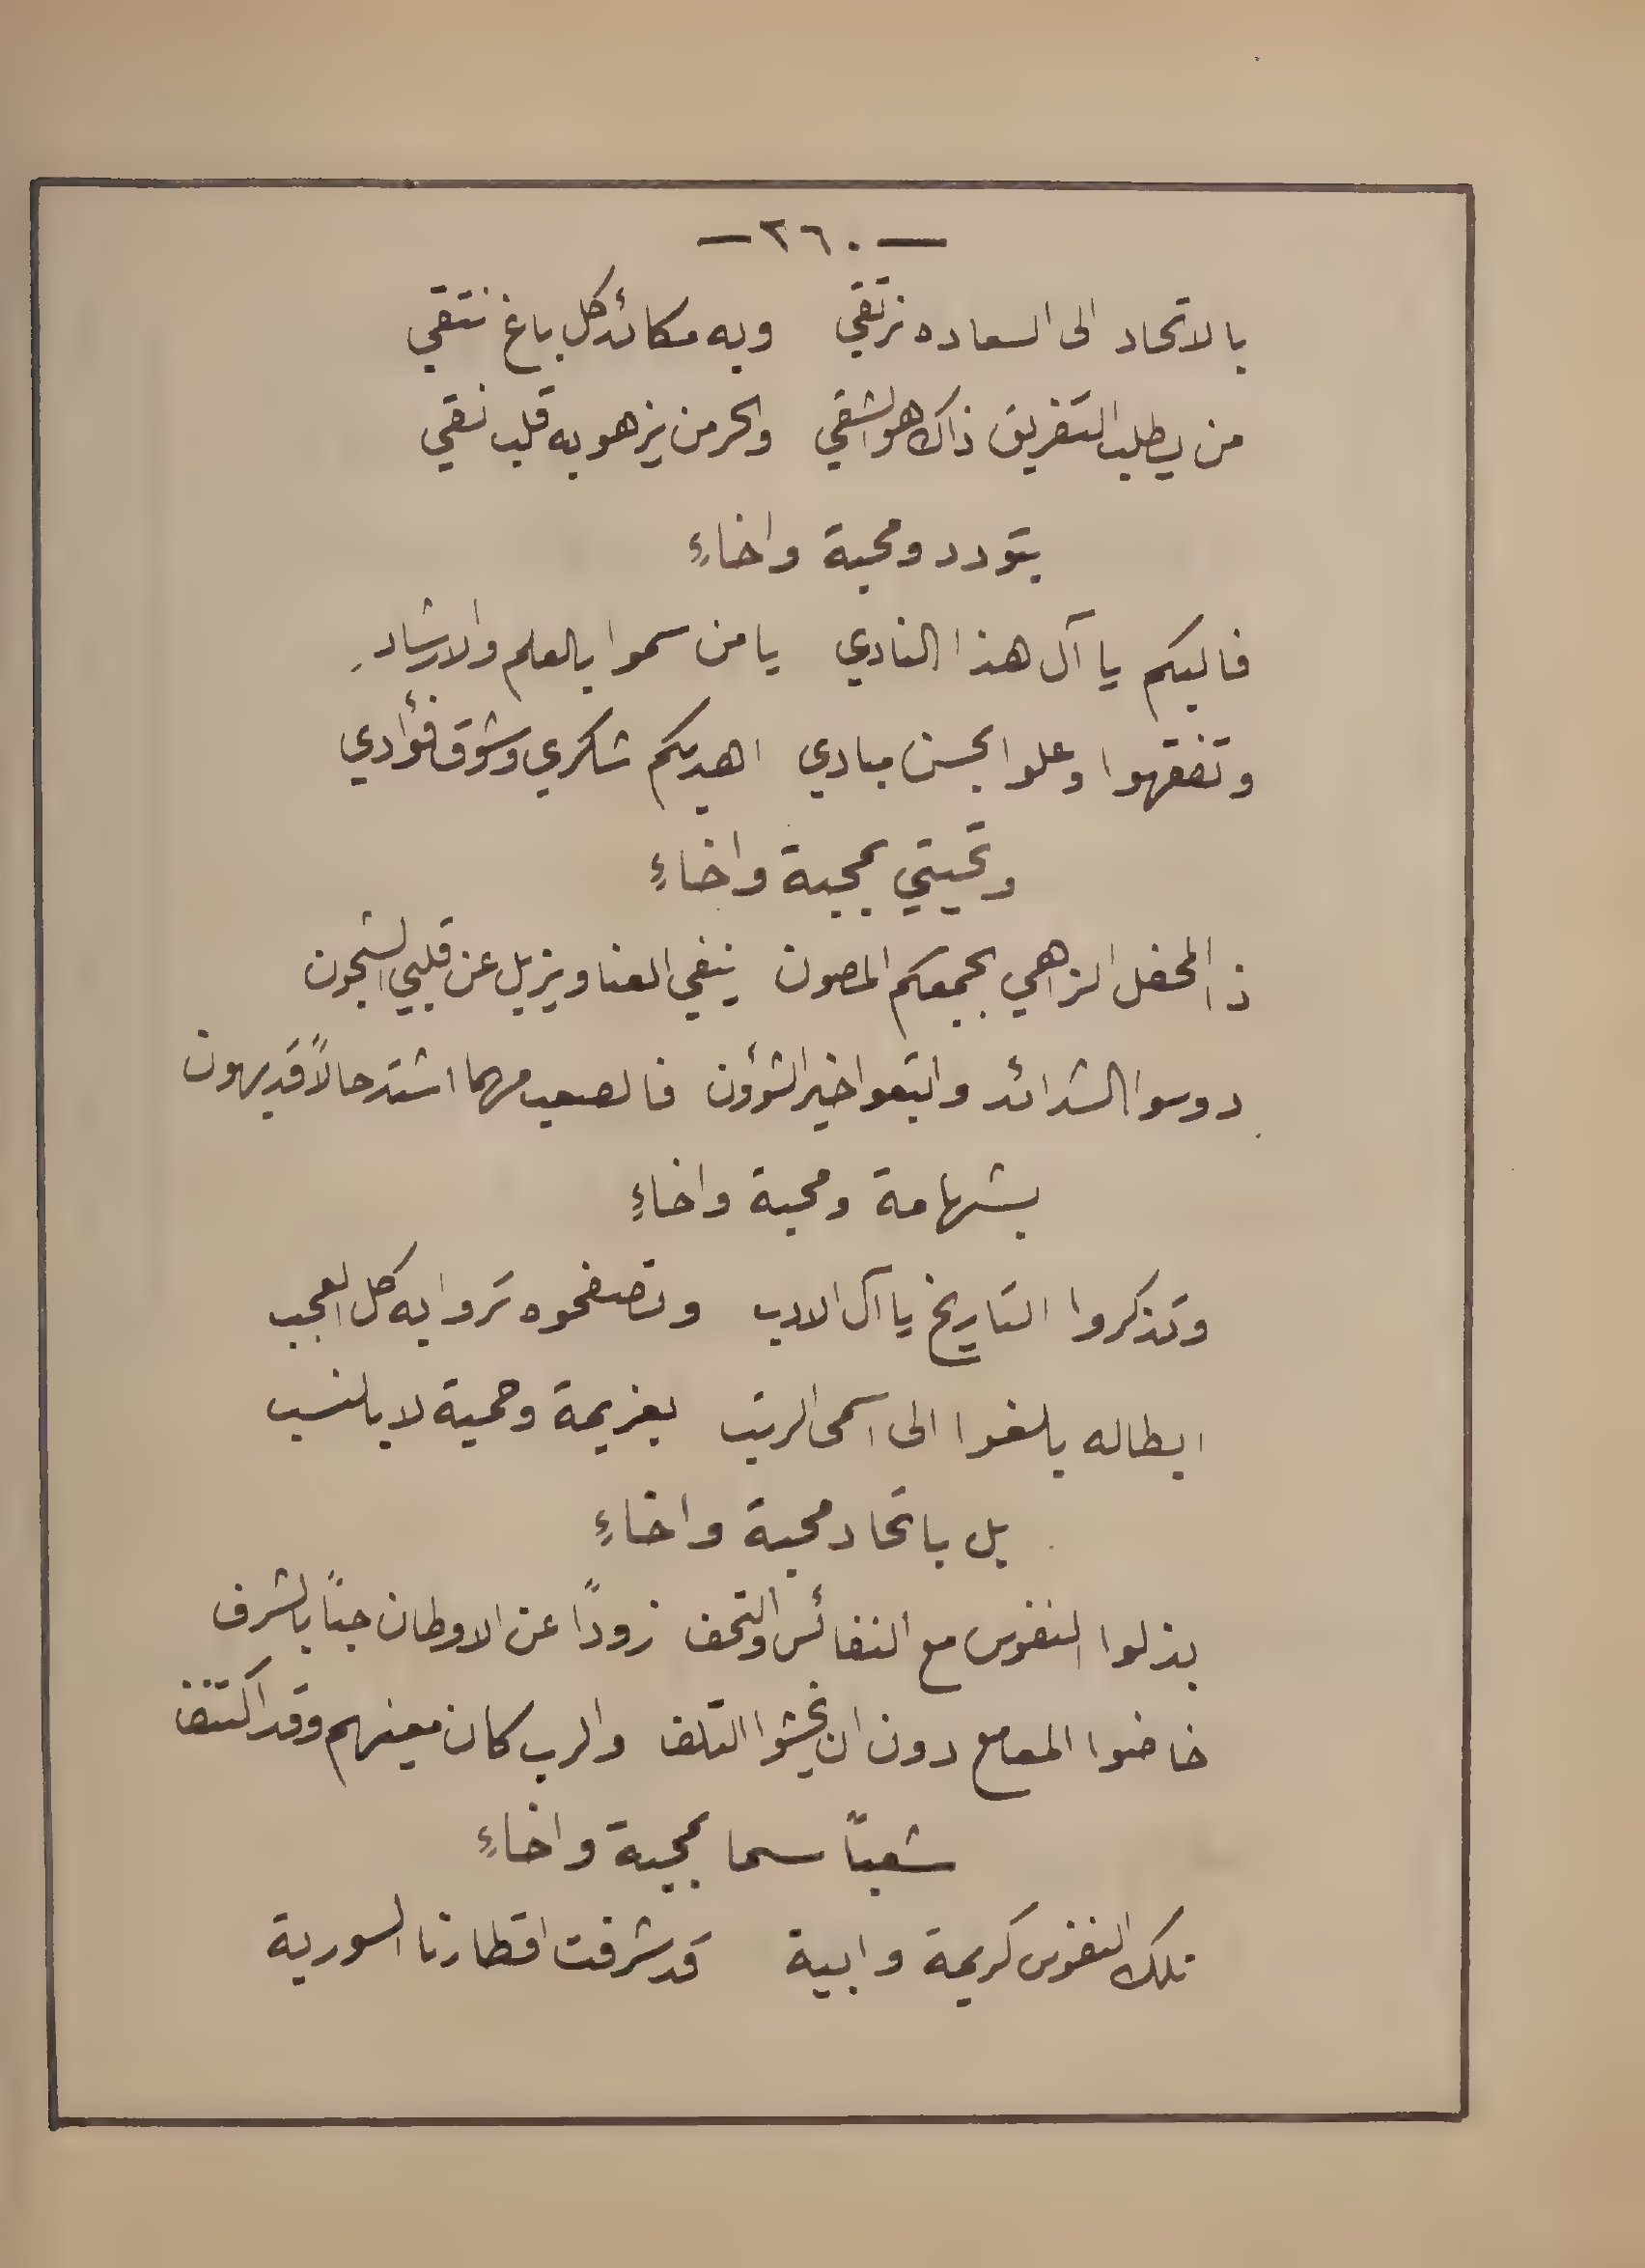 — ٢٦٠ —
بالاتحاد الى السعاده نرتقي وبه مكائد كل باغ نتقي
من يطلب التفريق ذاك هو الشقي والحر من يزهو به قلب نقي
بتودد ومحبة واخاءِ
فاليكم يا آل هذا النادي يا من سموا بالعلم والارشادِ
وتفقهوا وعلوا بحسن مبادي اهديكم شكري وشوق فؤادي
وتحيتي بمحبة واخاءِ
ذا المحفل الزاهي بجمعكم المصون ينفي العنا ويزيل عن قلبي الشجون
دوسوا الشدائد واتبعوا خير الشؤون فالصعب مهما اشتد حالاً قد يهون
بشهامة ومحبة واخاءِ
وتذكروا التاريخ يا آل الادب وتصفحوه تروا به كل العجب
ابطاله بلغوا الى اسمى الرتب بعزيمة وحمية لا بالنسب
بل باتحاد محبة واخاءِ
بذلوا النفوس مع النفائس والتحف زودًا عن الاوطان حبًا بالشرف
خاضوا المعامع دون ان يخشوا التلف والرب كان معينهم وقد اكتنف
شعبًا سما بمحبة واخاءِ
تلك النفوس كريمة وابية قد شرفت اقطارنا السورية